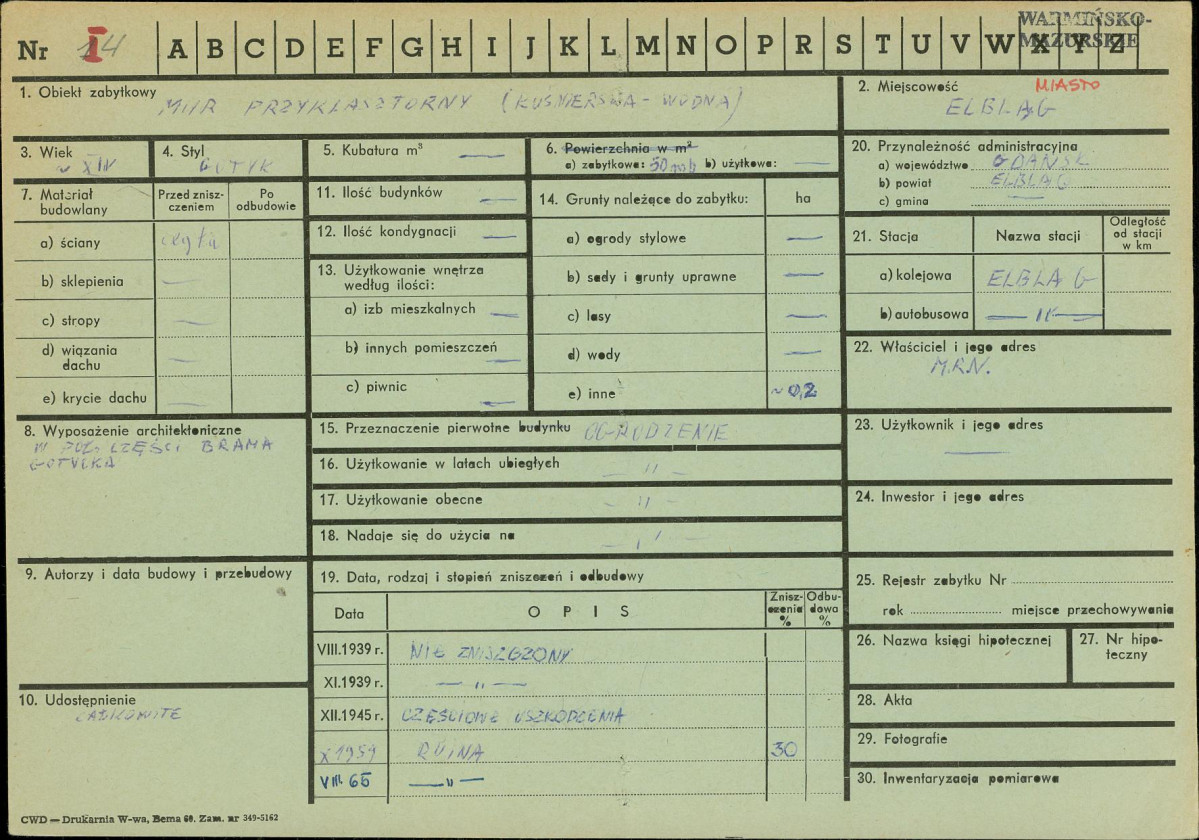 WARMIŃSKO-
MAZURSKIE
Nr I 14 A B C D E F G H I J K L M N O P R S T U V W X Y Z
1. Obiekt zabytkowy MUR PRZYKLASZTORNY (KUŚNIERSKA - WODNA)
2. Miejscowość MIASTO
ELBLĄG
3. Wiek
~ XIV
4. Styl
GOTYK
5. Kubatura m³ —
6. Powierzchnia w m²
a) zabytkowa: 50 mb b) użytkowa: —
20. Przynależność administracyjna
a) województwo GDAŃSK
b) powiat ELBLĄG
c) gmina —
7. Materiał budowlany
Przed znisz-
czeniem
Po
odbudowie
a) ściany cegła
b) sklepienia —
c) stropy —
d) wiązania
dachu —
e) krycie dachu —
11. Ilość budynków —
12. Ilość kondygnacji —
13. Użytkowanie wnętrza
według ilości:
a) izb mieszkalnych —
b) innych pomieszczeń —
c) piwnic —
14. Grunty należące do zabytku: ha
a) ogrody stylowe —
b) sady i grunty uprawne —
c) lasy —
d) wody —
e) inne ~ 0,2
21. Stacja Nazwa stacji
Odległość
od stacji
w km
a) kolejowa ELBLĄG
b) autobusowa — " —
22. Właściciel i jego adres
M.R.N.
8. Wyposażenie architektoniczne
W POŁ. CZĘŚCI BRAMA
GOTYCKA
15. Przeznaczenie pierwotne budynku OGRODZENIE
16. Użytkowanie w latach ubiegłych — " —
17. Użytkowanie obecne — " —
18. Nadaje się do użycia na — " —
23. Użytkownik i jego adres
—
24. Inwestor i jego adres
9. Autorzy i data budowy i przebudowy
10. Udostępnienie
CAŁKOWITE
19. Data, rodzaj i stopień zniszczeń i odbudowy
Data OPIS
Znisz-
czenia
%
Odbu-
dowa
%
VIII.1939 r. NIE ZNISZCZONY
XI.1939 r. — " —
XII.1945 r. CZĘŚCIOWE USZKODZENIA
X 1959 RUINA 30
VIII. 65 — " —
25. Rejestr zabytku Nr
rok miejsce przechowywania
26. Nazwa księgi hipotecznej
27. Nr hipo-
teczny
28. Akta
29. Fotografie
30. Inwentaryzacja pomiarowa
CWD — Drukarnia W-wa, Bema 60. Zam. nr 349-5162